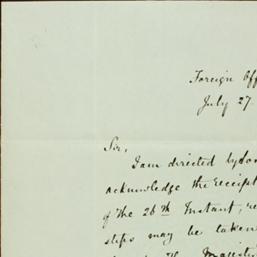 Foreign Off
July 27.
Sir,
I am directed by
acknowledge the receipt
of the 26th Instant,
steps may be taken
Majesty